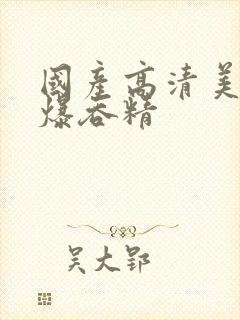 國產高清美
爆吞精
吴大郢